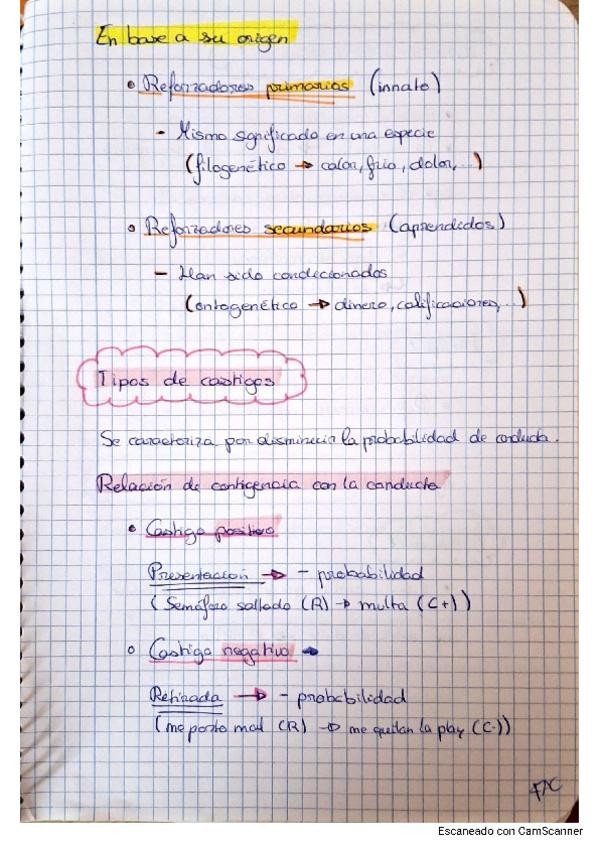 En base a su origen
• Reforzadores primarios (innato)
- Mismo significado en una especie
(filogenético → calor, frío, dolor,...)
• Reforzadores secundarios (aprendidos)
- Han sido condicionados
(ontogenético → dinero, calificaciones,...)
Tipos de castigos
Se caracteriza por disminuir la probabilidad de conducta.
Relación de contigencia con la conducta
• Castigo positivo
Presentación → - probabilidad
(Semáforo saltado (R) → multa (C+))
• Castigo negativo →
Retirada → - probabilidad
(me porto mal (R) → me quitan la play (C-))
Escaneado con CamScanner